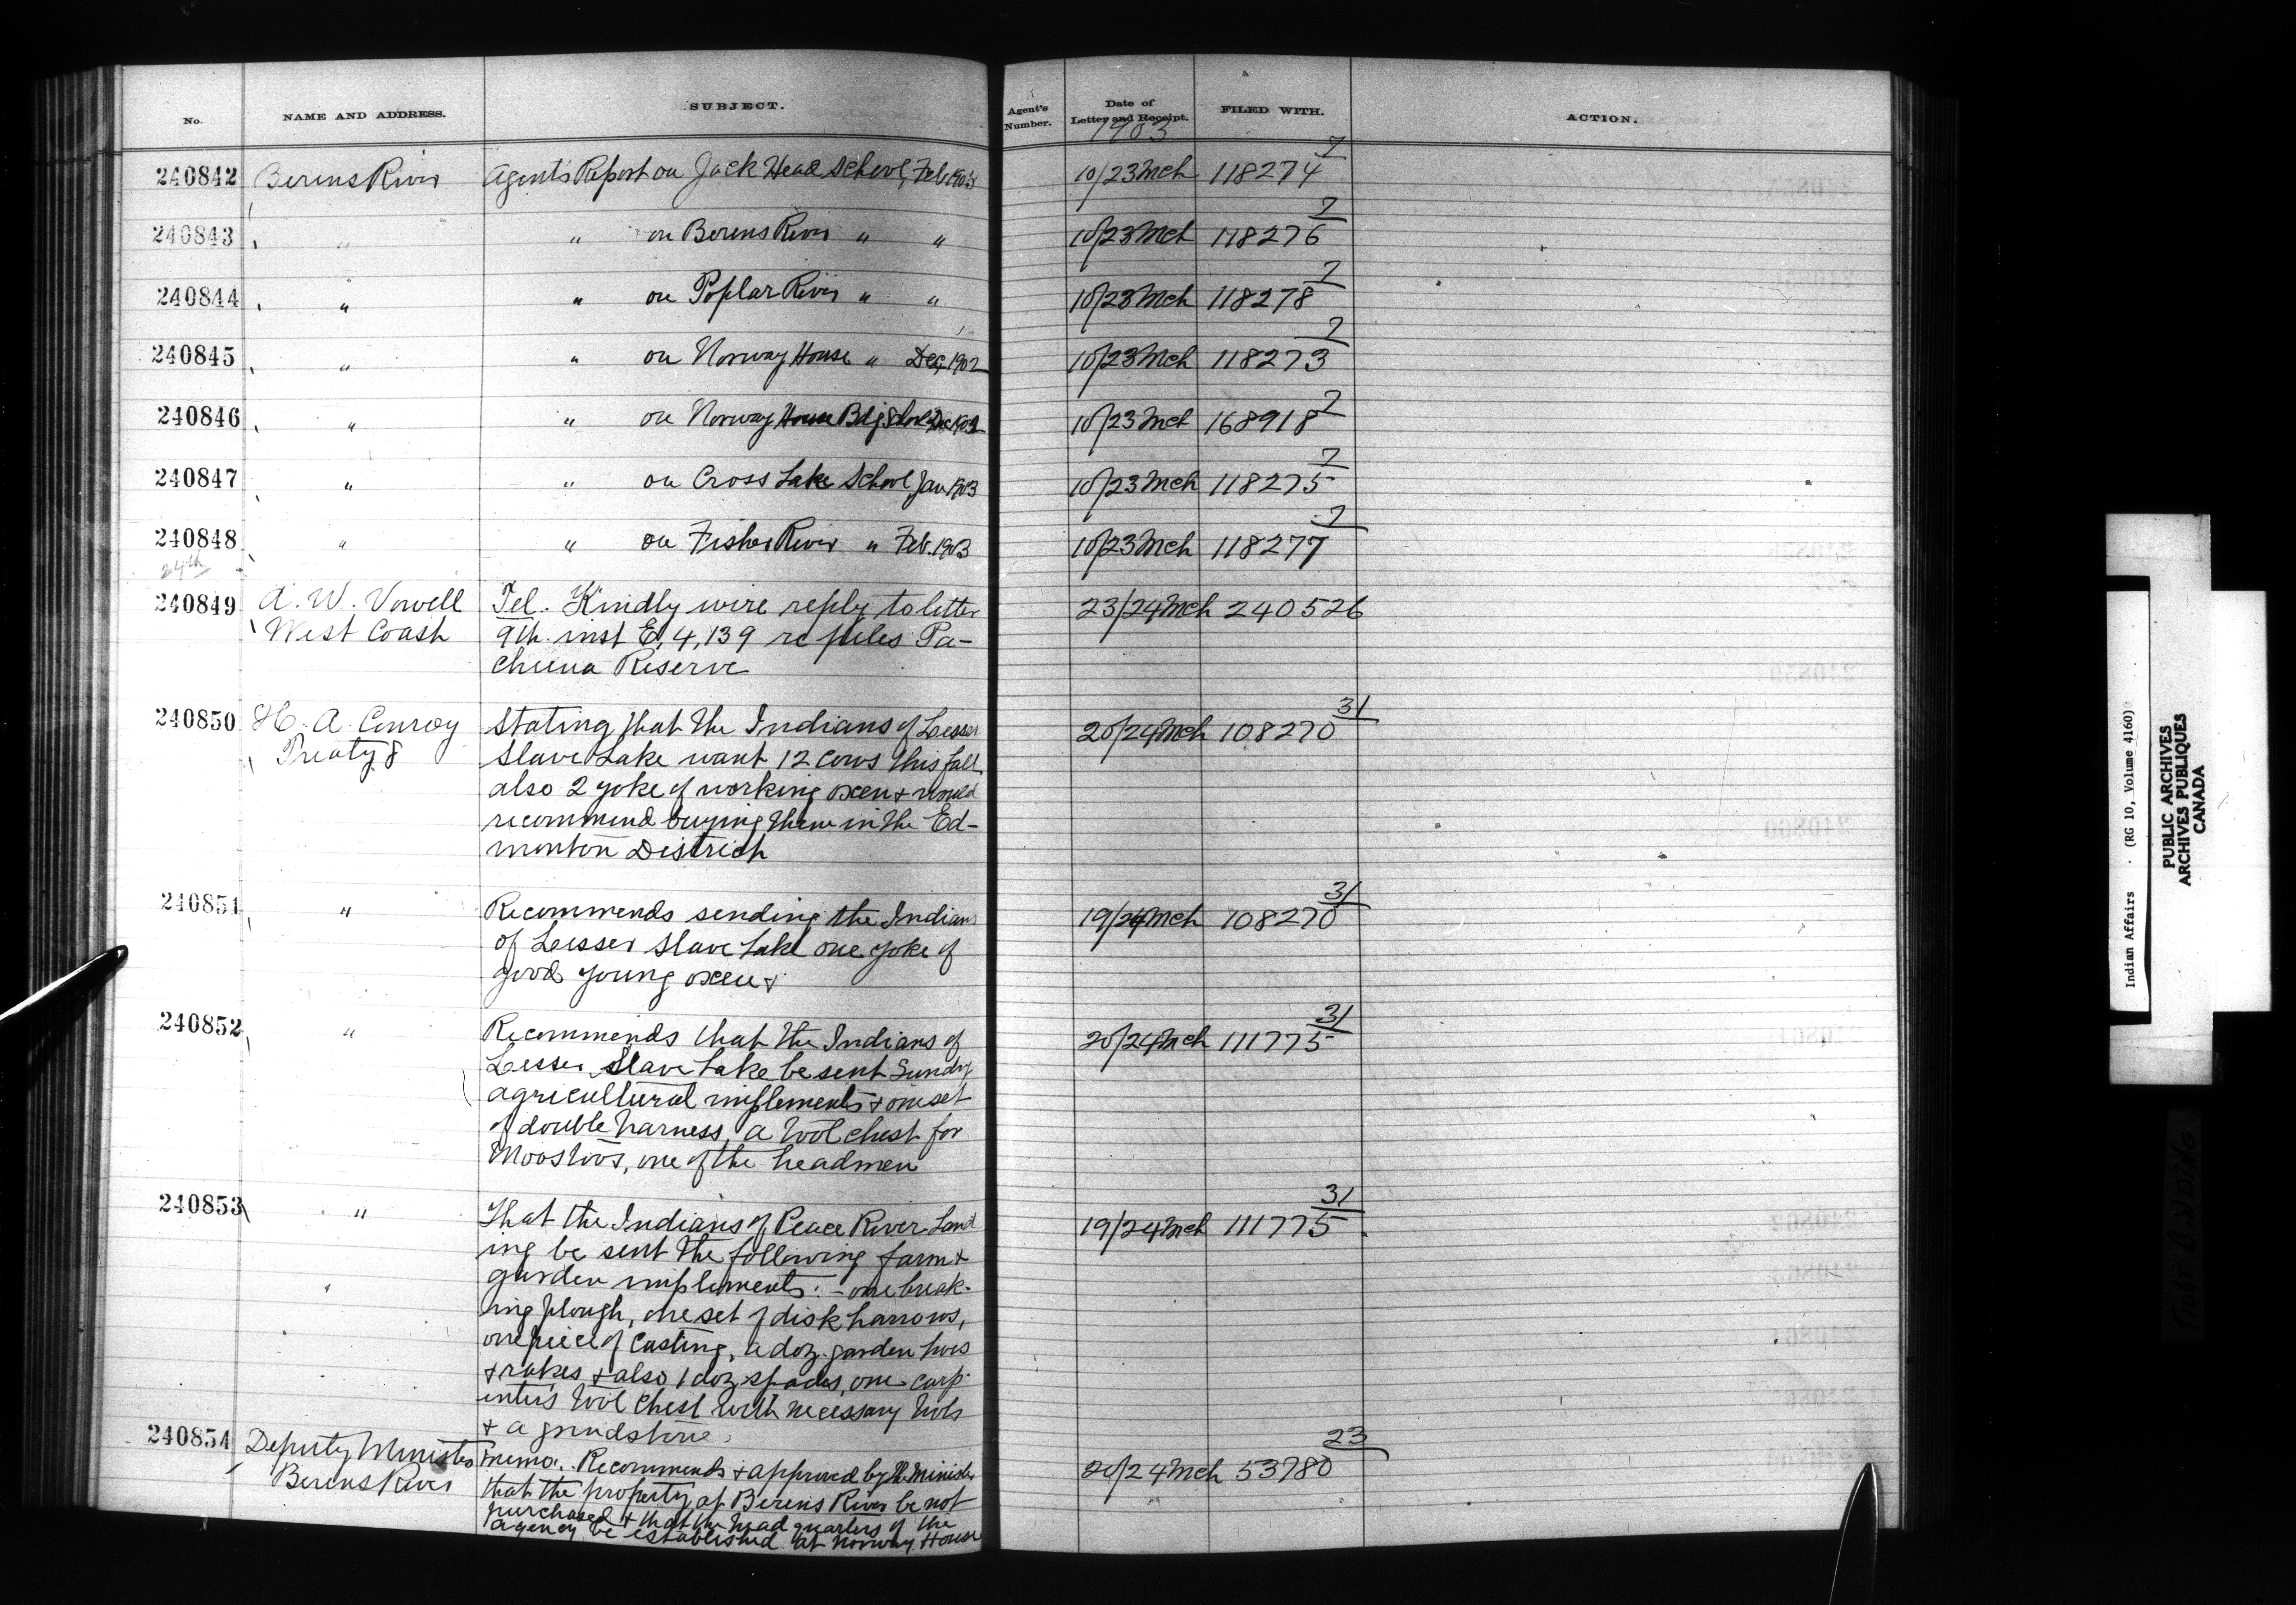 No. NAME AND ADDRESS. SUBJECT. Agent's Number. Date of Letter and Receipt. FILED WITH. ACTION.
1903
240842 Berens River Agent's Report on Jack Head School, Feb 1903 10/23 Mch 118274 7
240843 " " on Berens River " " 10/23 Mch 118276 7
240844 " " on Poplar River " " 10/23 Mch 118278 7
240845 " " on Norway House " Dec, 1902 10/23 Mch 118273 7
240846 " " on Norway House Bdg School Dec 1902 10/23 Mch 168918 7
240847 " " on Cross Lake School Jan 1903 10/23 Mch 118275 7
240848 " " on Fisher River " Feb. 1903 10/23 Mch 118277 7
24th
240849 A. W. Vowell Tel. Kindly wire reply to letter 23/24 Mch 240526
West Coast 9th inst E, 4,139 re piles Pa-
cheena Reserve
240850 H. A. Conroy Stating that the Indians of Lesser 20/24 Mch 108270 31
Treaty 8 Slave Lake want 12 cows this fall
also 2 yoke of working oxen & would
recommend buying them in the Ed-
monton District
240851 " Recommends sending the Indians 19/24 Mch 108270 31
of Lesser Slave Lake one yoke of
good young oxen &
240852 " Recommends that the Indians of 20/24 Mch 111775 31
Lesser Slave Lake be sent Sundry
agricultural implements & one set
of double harness, a tool chest for
Moostoos, one of the headmen
240853 " That the Indians of Peace River Land 19/24 Mch 111775 31
ing be sent the following farm &
garden implements: - one break-
ing plough, one set of disk harrows,
one piece of casting, a doz. garden hoes
& rakes & also 1 doz spades, one carp-
enter's tool chest with necessary tools
& a grindstone.
240854 Deputy Minister memo. Recommends & approved by the Minister 20/24 Mch 53780 23
Berens River that the property at Berens River be not
purchased & that the head quarters of the
agency be established at Norway House
Indian Affairs (RG 10, Volume 4160)
PUBLIC ARCHIVES
ARCHIVES PUBLIQUES
CANADA